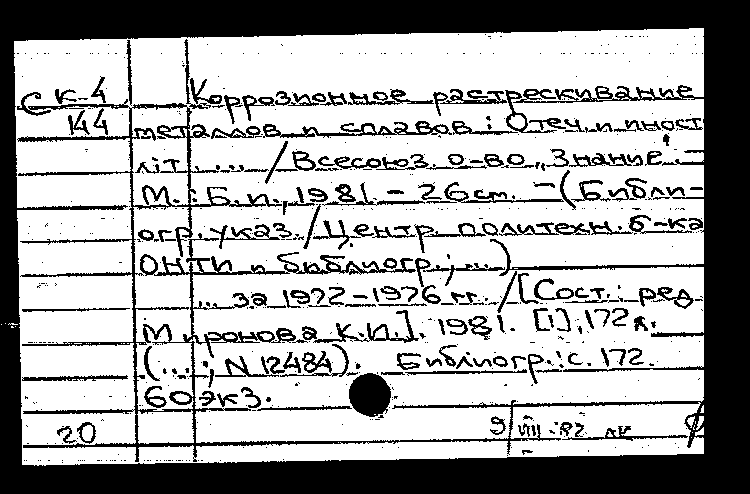 СК-4 Коррозионное растрескивание
144 металлов и сплавов: Отеч. и иност
літ. ... / Всесоюз. о-во „Знание". —
М.: Б.и., 1981. - 26 см. - (Библи-
огр. указ. / Центр. политехн. б-ка
ОНТИ и библиогр.; ...)
... за 1972-1976 гг. / [Сост.: ред.
Миронова К.И.]. 1981. [1], 172 л.
(...; N 12484). Библиогр.: с. 172.
60 экз.
20 9/VIII-82